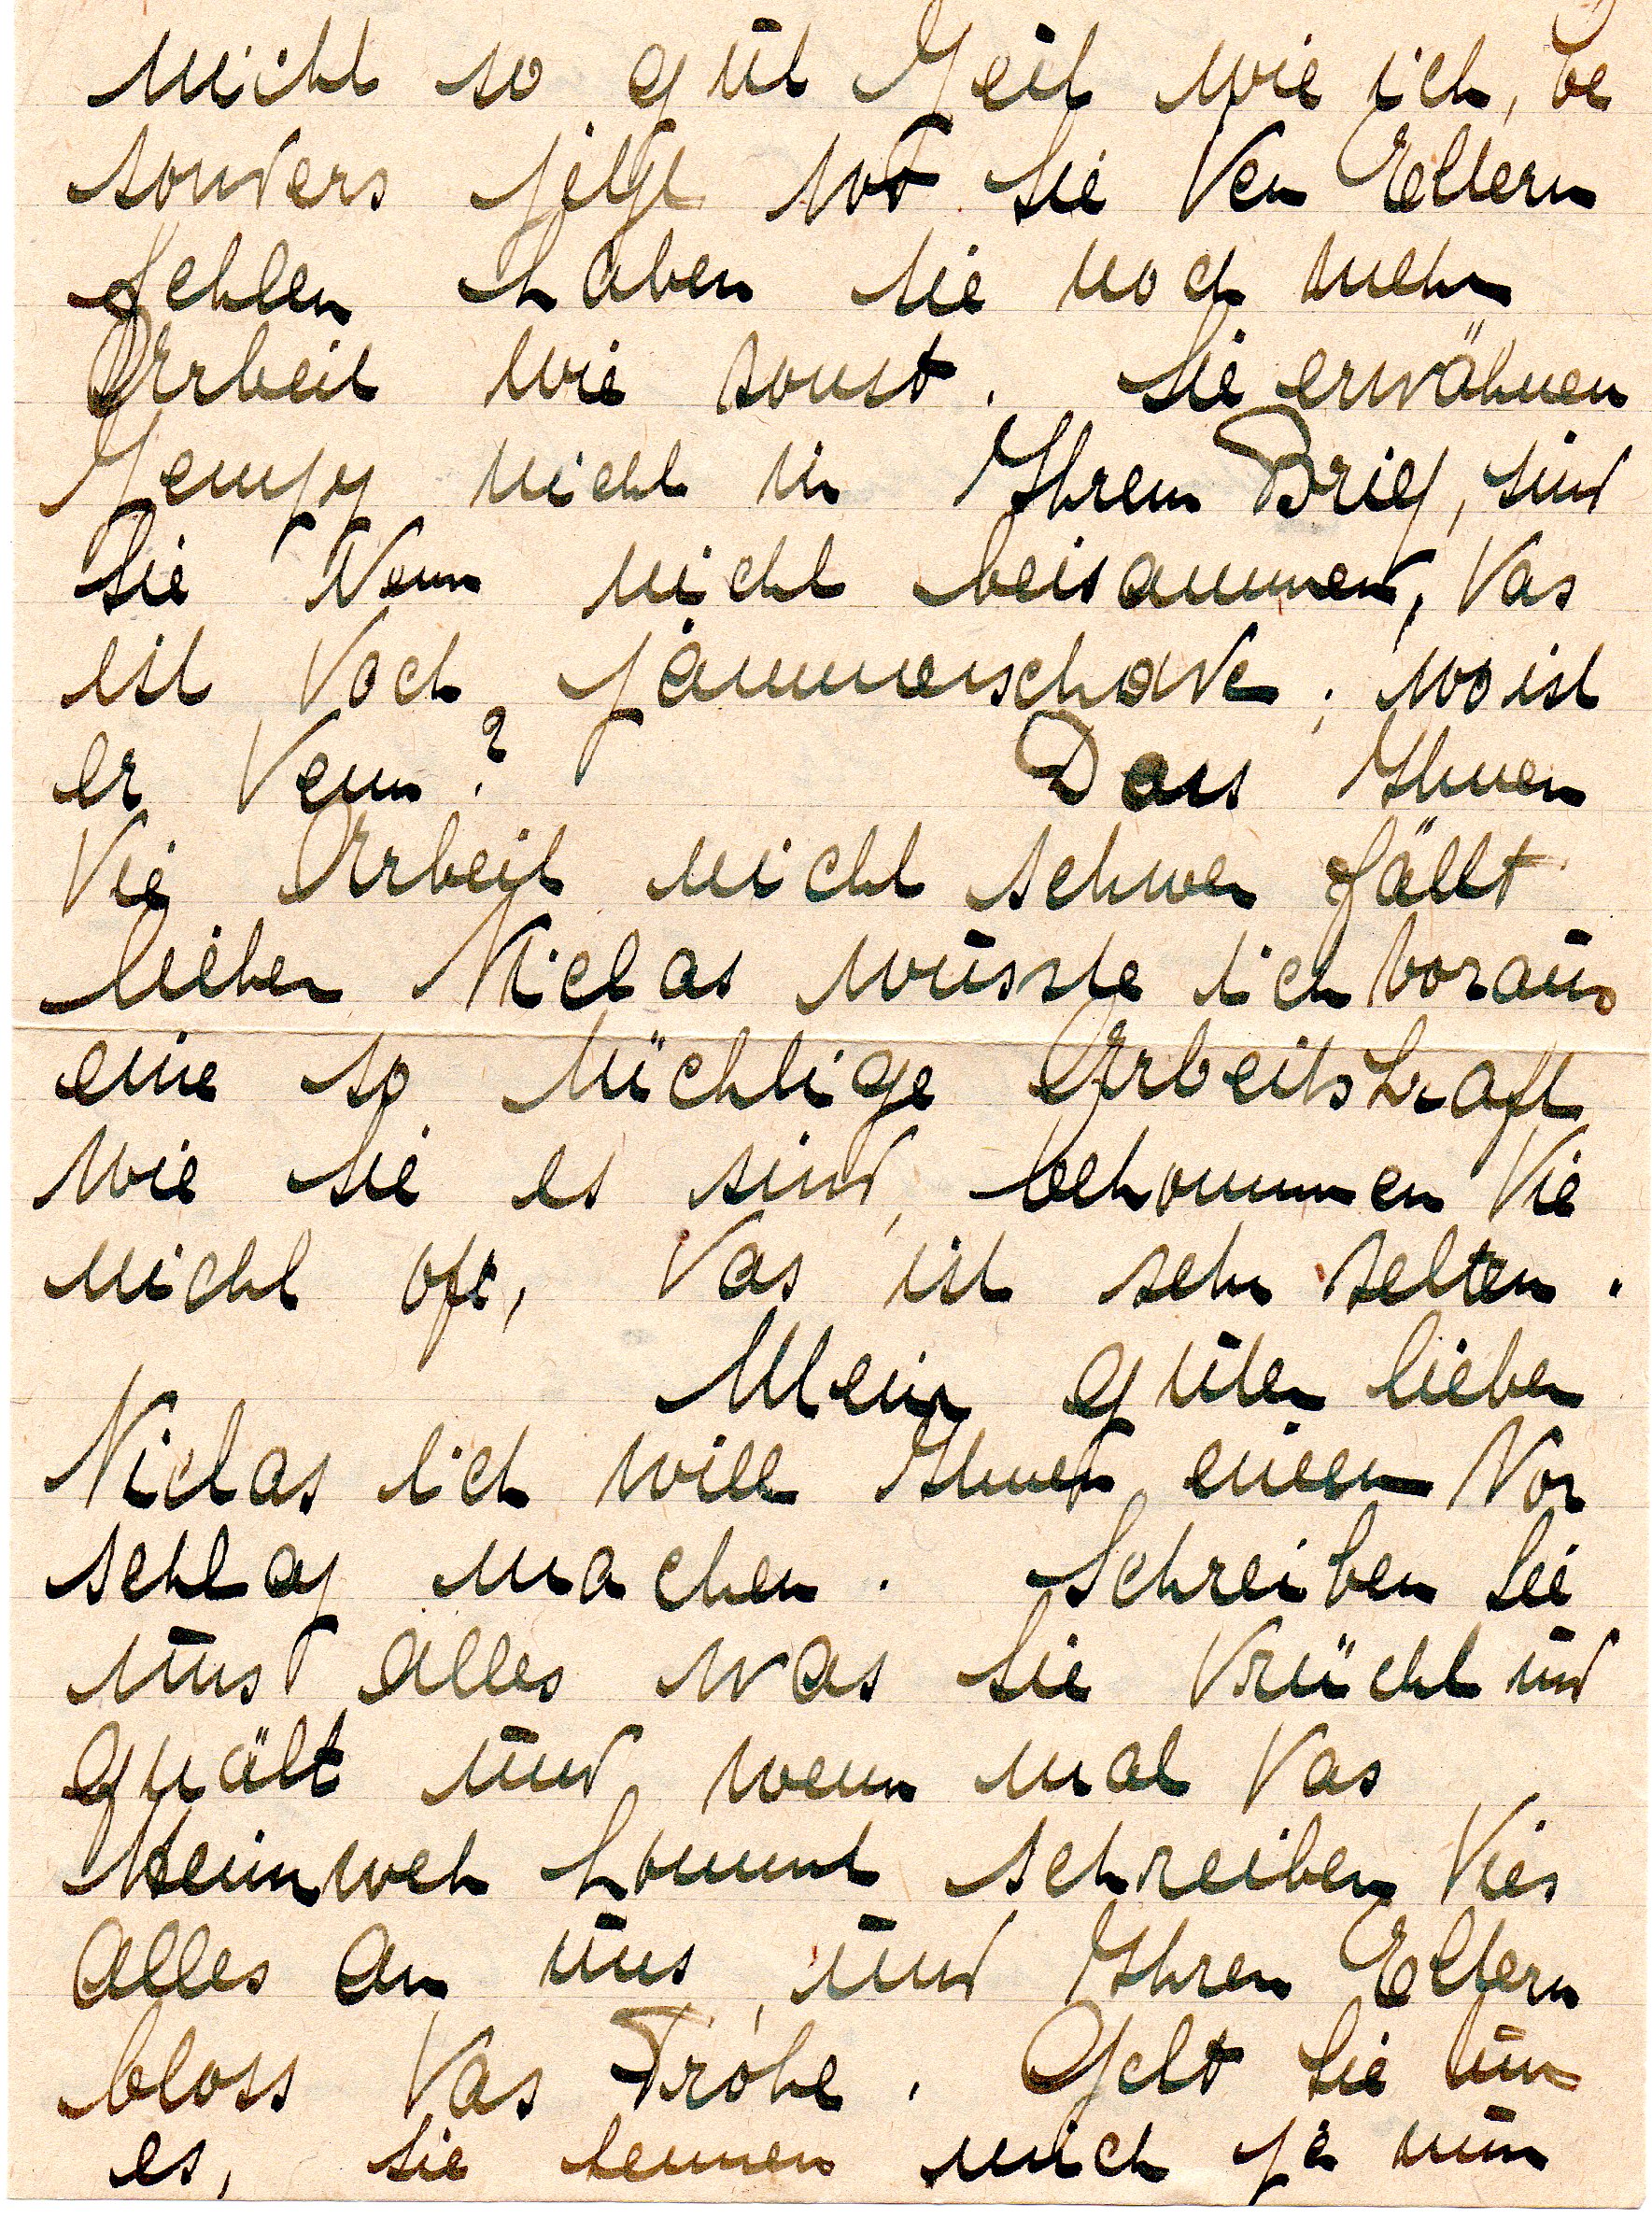 nicht so gut Zeit wie ich, be
sonders jetzt wo Sie den Eltern
fehlen haben sie noch mehr
Arbeit wie sonst. Sie erwähnen
Jempy nicht in Ihrem Brief, sind
Sie denn nicht beisammen, das
ist doch jammerschade; wo ist
er denn? Dass Ihnen
die Arbeit nicht schwer fällt
lieber Niclas wusste ich voraus
eine so tüchtige Arbeitskraft
wie Sie es sind, bekommen die
nicht oft, das ist sehr selten.
Mein guter lieber
Niclas ich will Ihnen einen Vor
schlag machen. Schreiben Sie
uns alles was Sie drückt und
quält und wenn mal das
Heimweh kommt schreiben dies
alles an uns, und Ihren Eltern
bloss das Frohe. Gelt Sie tun
es, Sie kennen mich ja nun